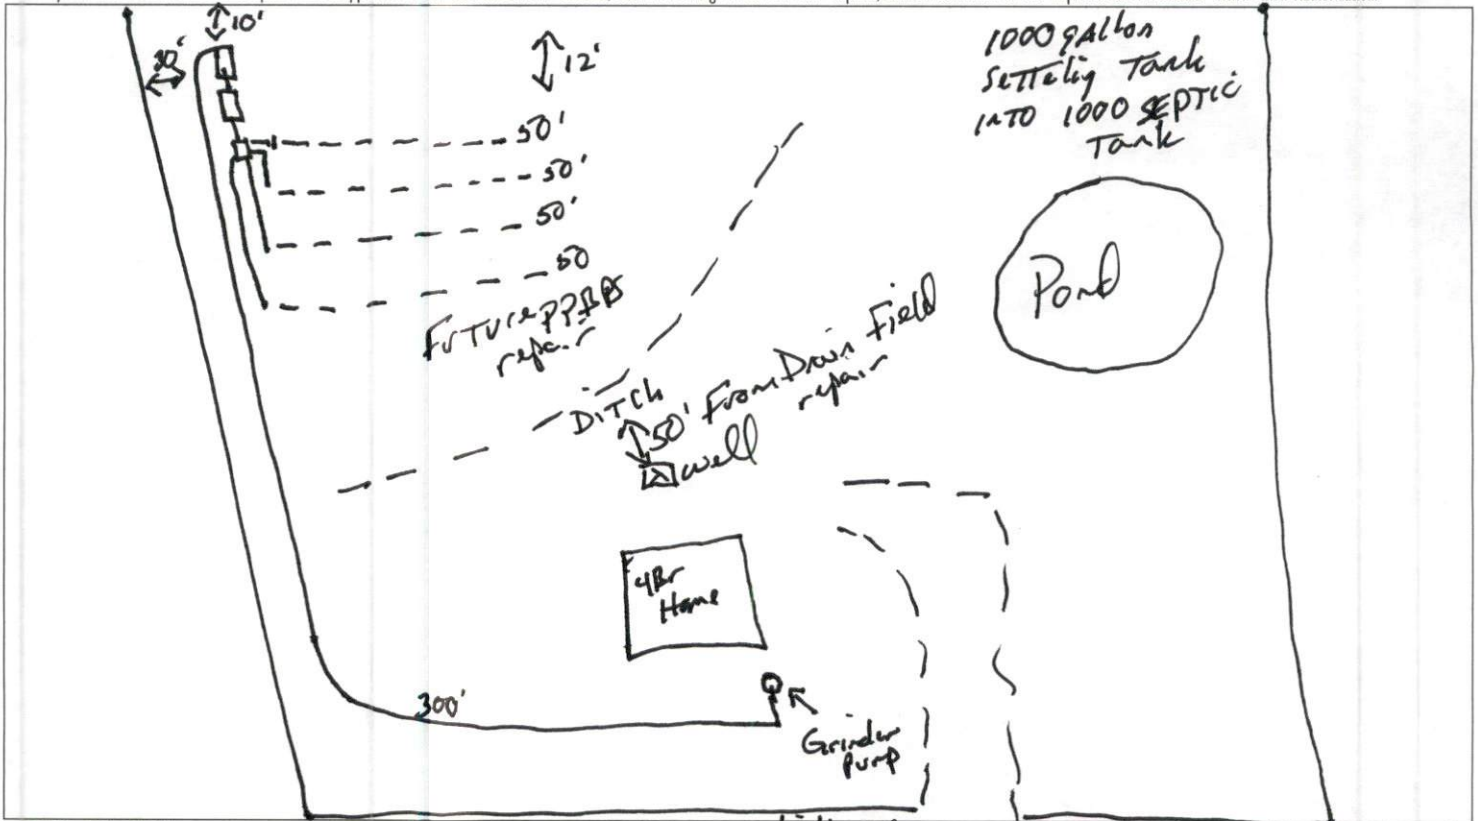 10'
30'
12'
1000 gallon
Settelig Tank
into 1000 SEPTIC
Tank
50'
50'
50'
50
Future PPBPS
repair
Pond
DITCH
50' From Drain Field
repair
well
4Br
Home
300'
Grinder
Pump